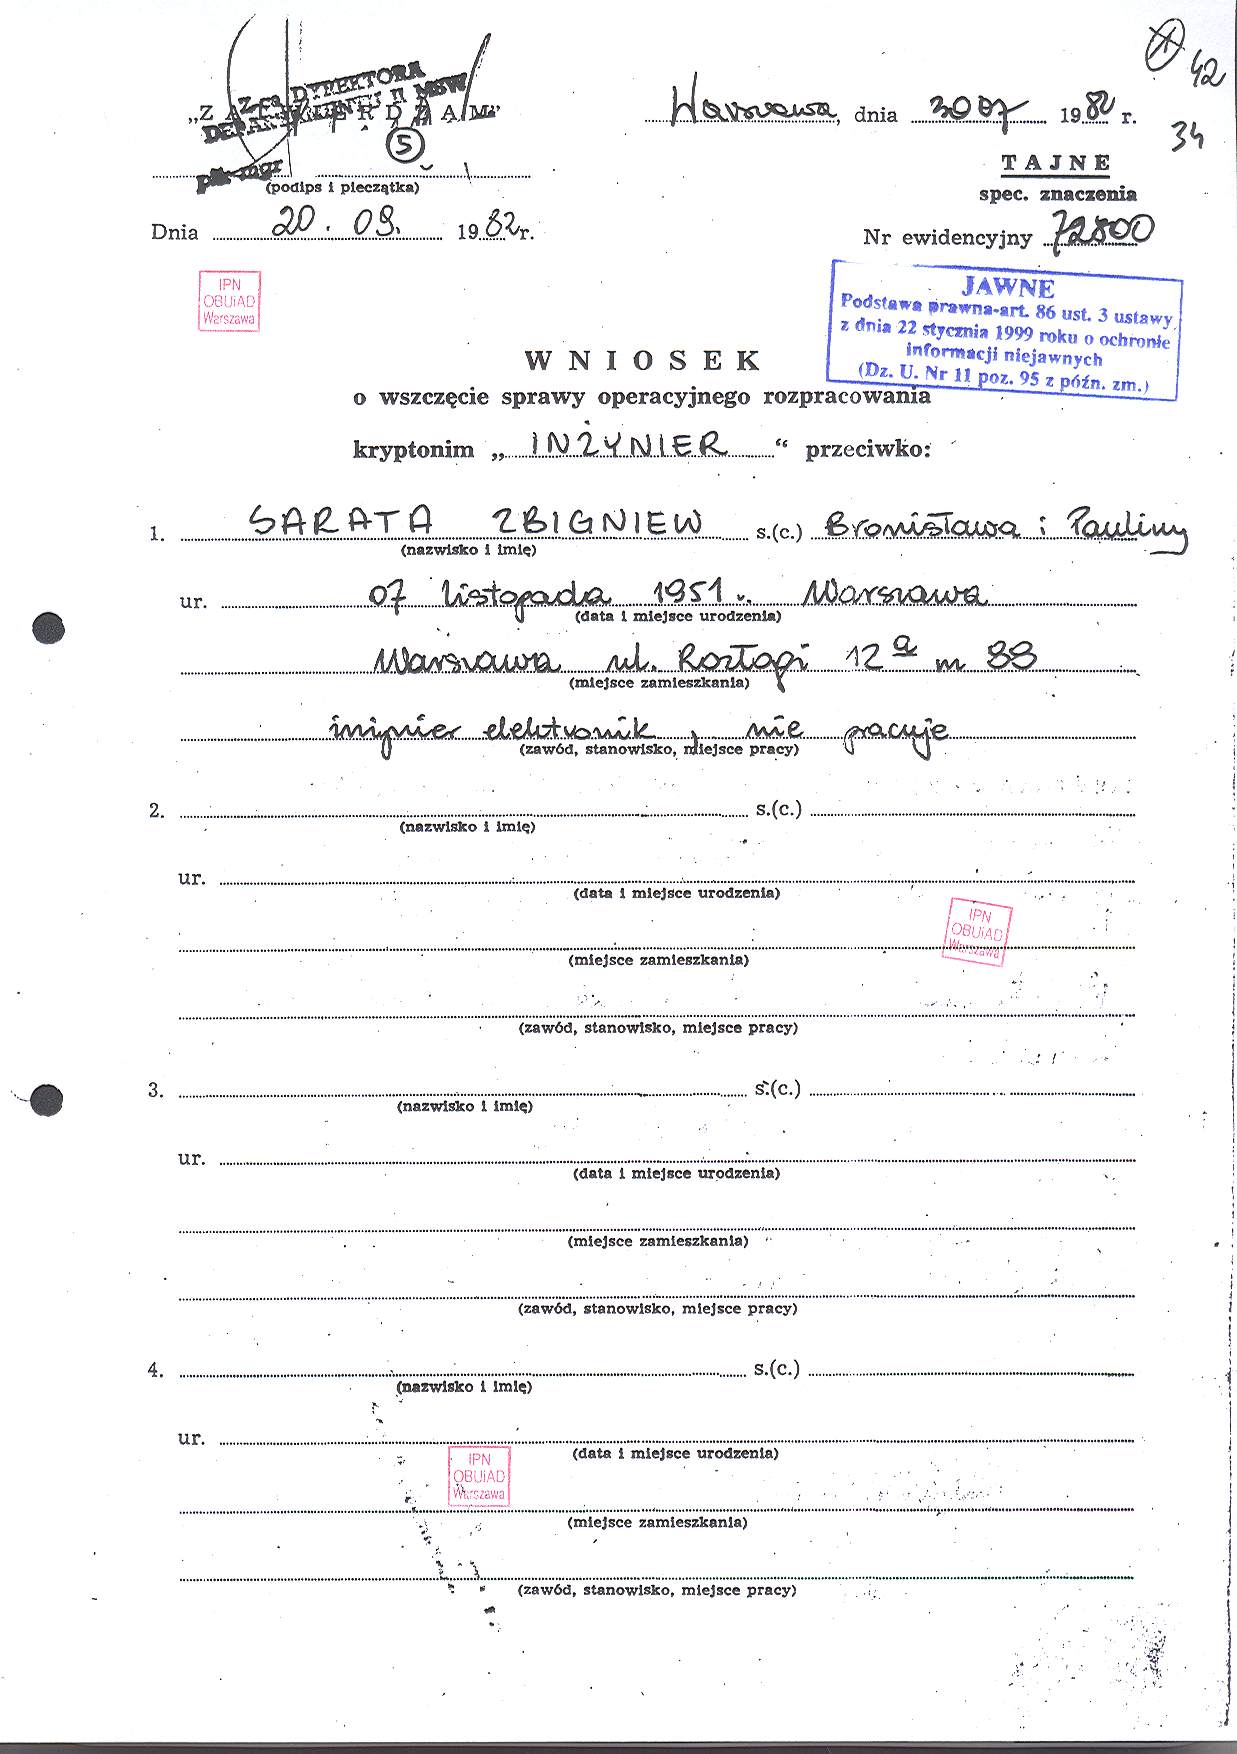 42
34
Z-ca DYREKTORA
DEPARTAMENTU II MSW
„ZATWIERDZAM”
5
płk mgr
(podips i pieczątka)
Dnia 20. 09. 1982 r.
Warszawa, dnia 30 07 1982 r.
TAJNE
spec. znaczenia
Nr ewidencyjny 72800
IPN
OBUiAD
Warszawa
JAWNE
Podstawa prawna-art. 86 ust. 3 ustawy
z dnia 22 stycznia 1999 roku o ochronie
informacji niejawnych
(Dz. U. Nr 11 poz. 95 z późn. zm.)
WNIOSEK
o wszczęcie sprawy operacyjnego rozpracowania
kryptonim „INŻYNIER“ przeciwko:
1. SARATA ZBIGNIEW s.(c.) Bronisława i Pauliny
(nazwisko i imię)
ur. 07 listopada 1951 r. Warszawa
(data i miejsce urodzenia)
Warszawa ul. Rozłogi 12 a m 88
(miejsce zamieszkania)
inżynier elektronik, nie pracuje
(zawód, stanowisko, miejsce pracy)
2. s.(c.)
(nazwisko i imię)
ur.
(data i miejsce urodzenia)
IPN
OBUiAD
Warszawa
(miejsce zamieszkania)
(zawód, stanowisko, miejsce pracy)
3. s.(c.)
(nazwisko i imię)
ur.
(data i miejsce urodzenia)
(miejsce zamieszkania)
(zawód, stanowisko, miejsce pracy)
4. s.(c.)
(nazwisko i imię)
ur.
(data i miejsce urodzenia)
IPN
OBUiAD
Warszawa
(miejsce zamieszkania)
(zawód, stanowisko, miejsce pracy)